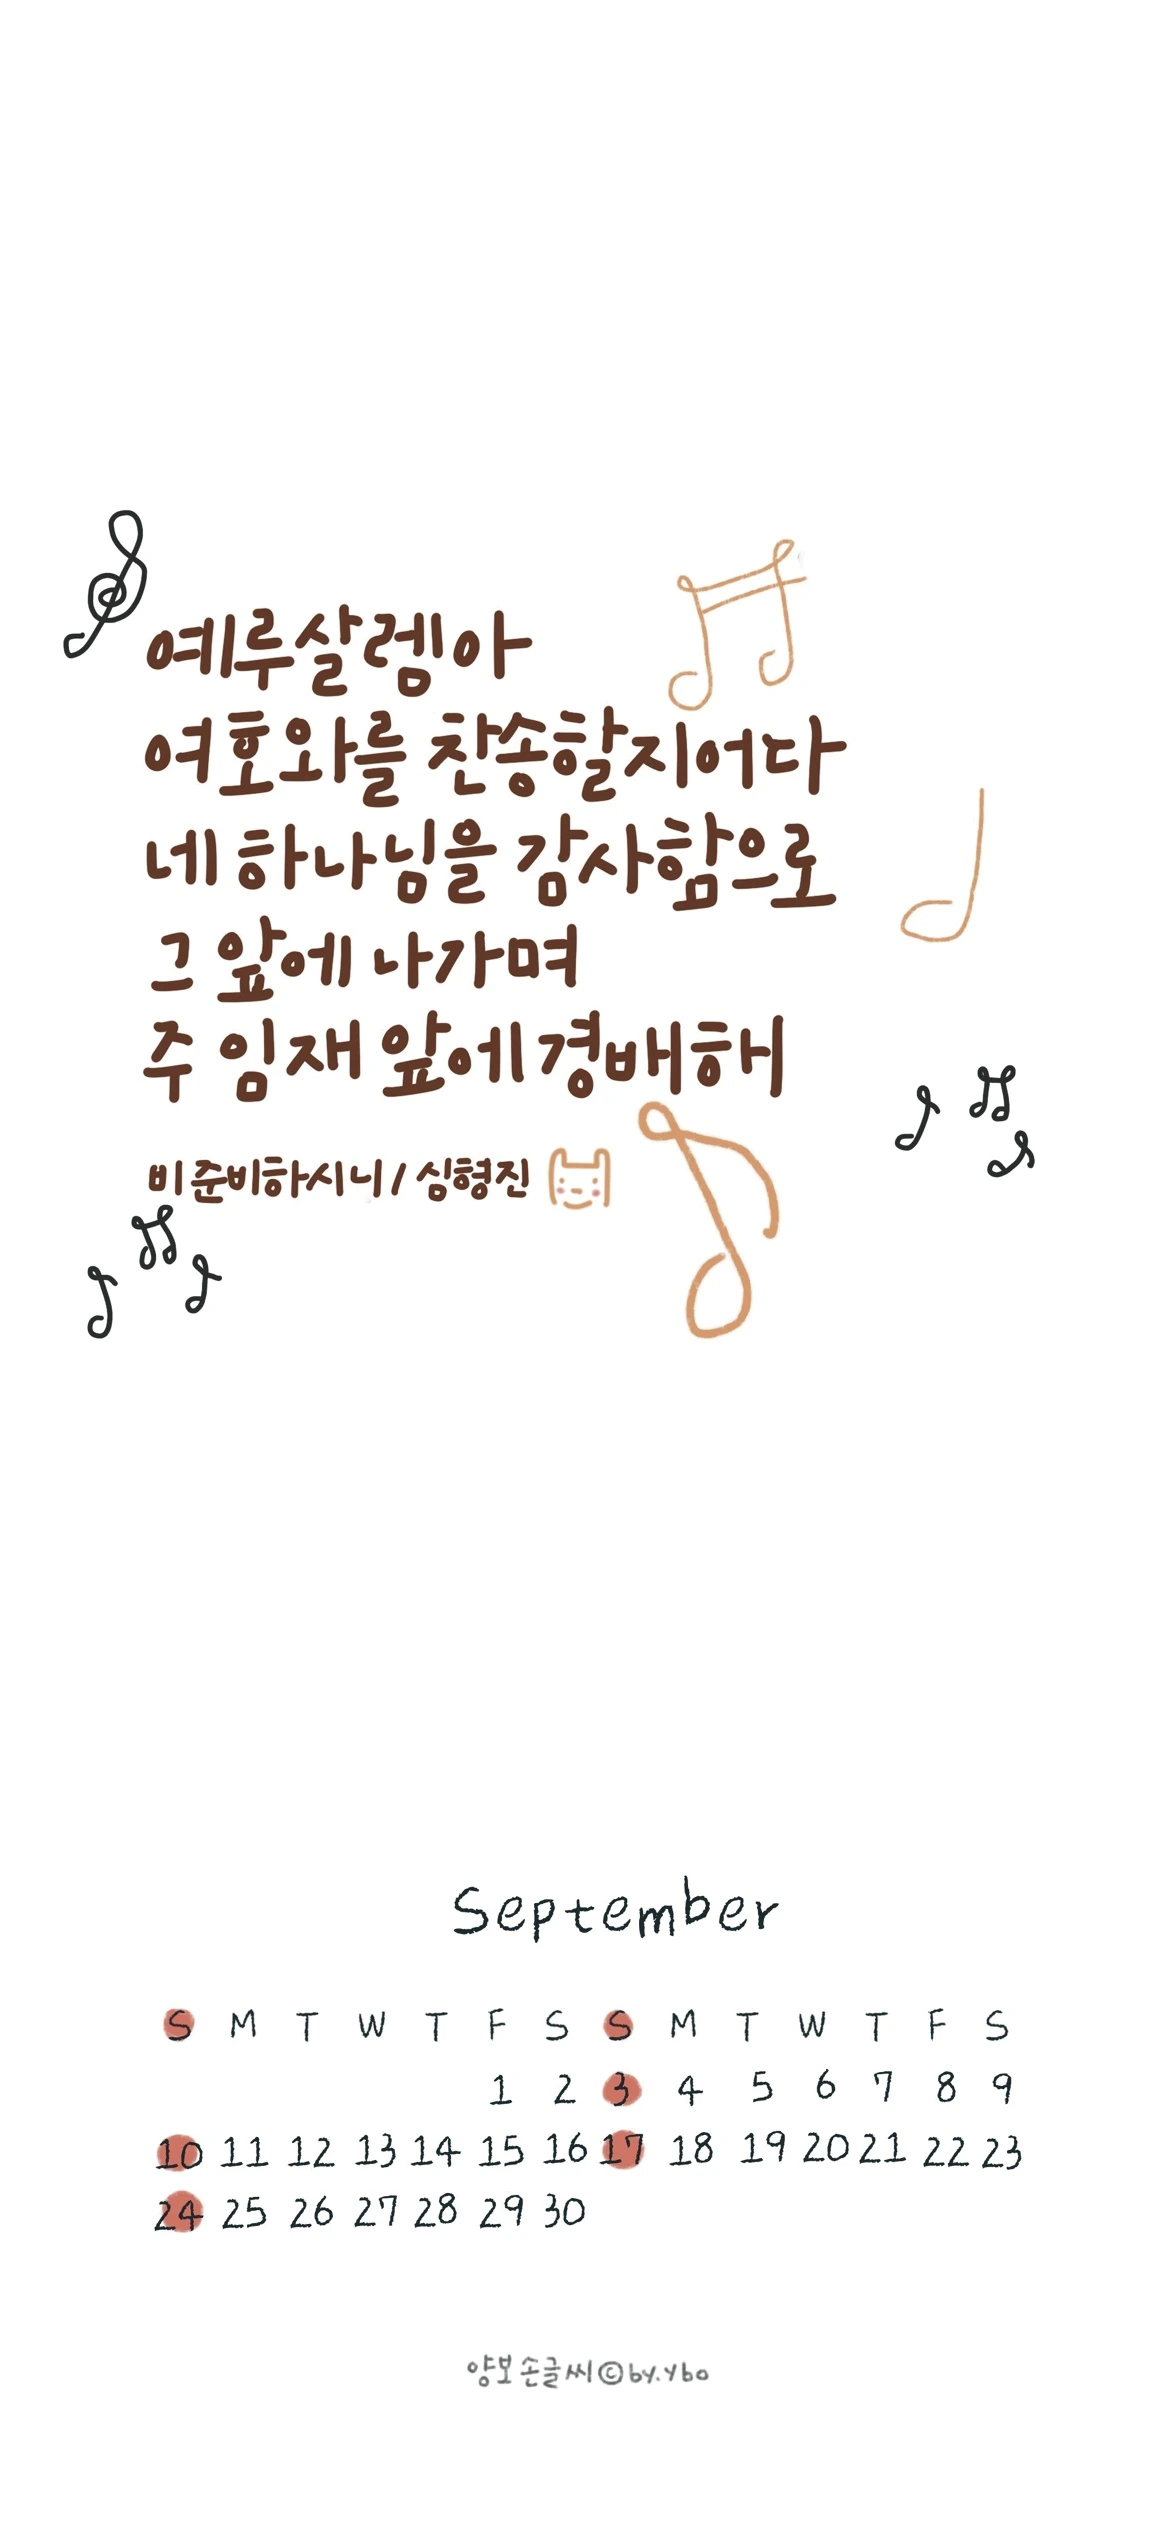 예루살렘아
여호와를 찬송할지어다
네 하나님을 감사함으로
그 앞에 나가며
주 임재 앞에 경배해
비 준비하시니 / 심형진
September
S M T W T F S S M T W T F S
1 2 3 4 5 6 7 8 9
10 11 12 13 14 15 16 17 18 19 20 21 22 23
24 25 26 27 28 29 30
양보손글씨©by.ybo